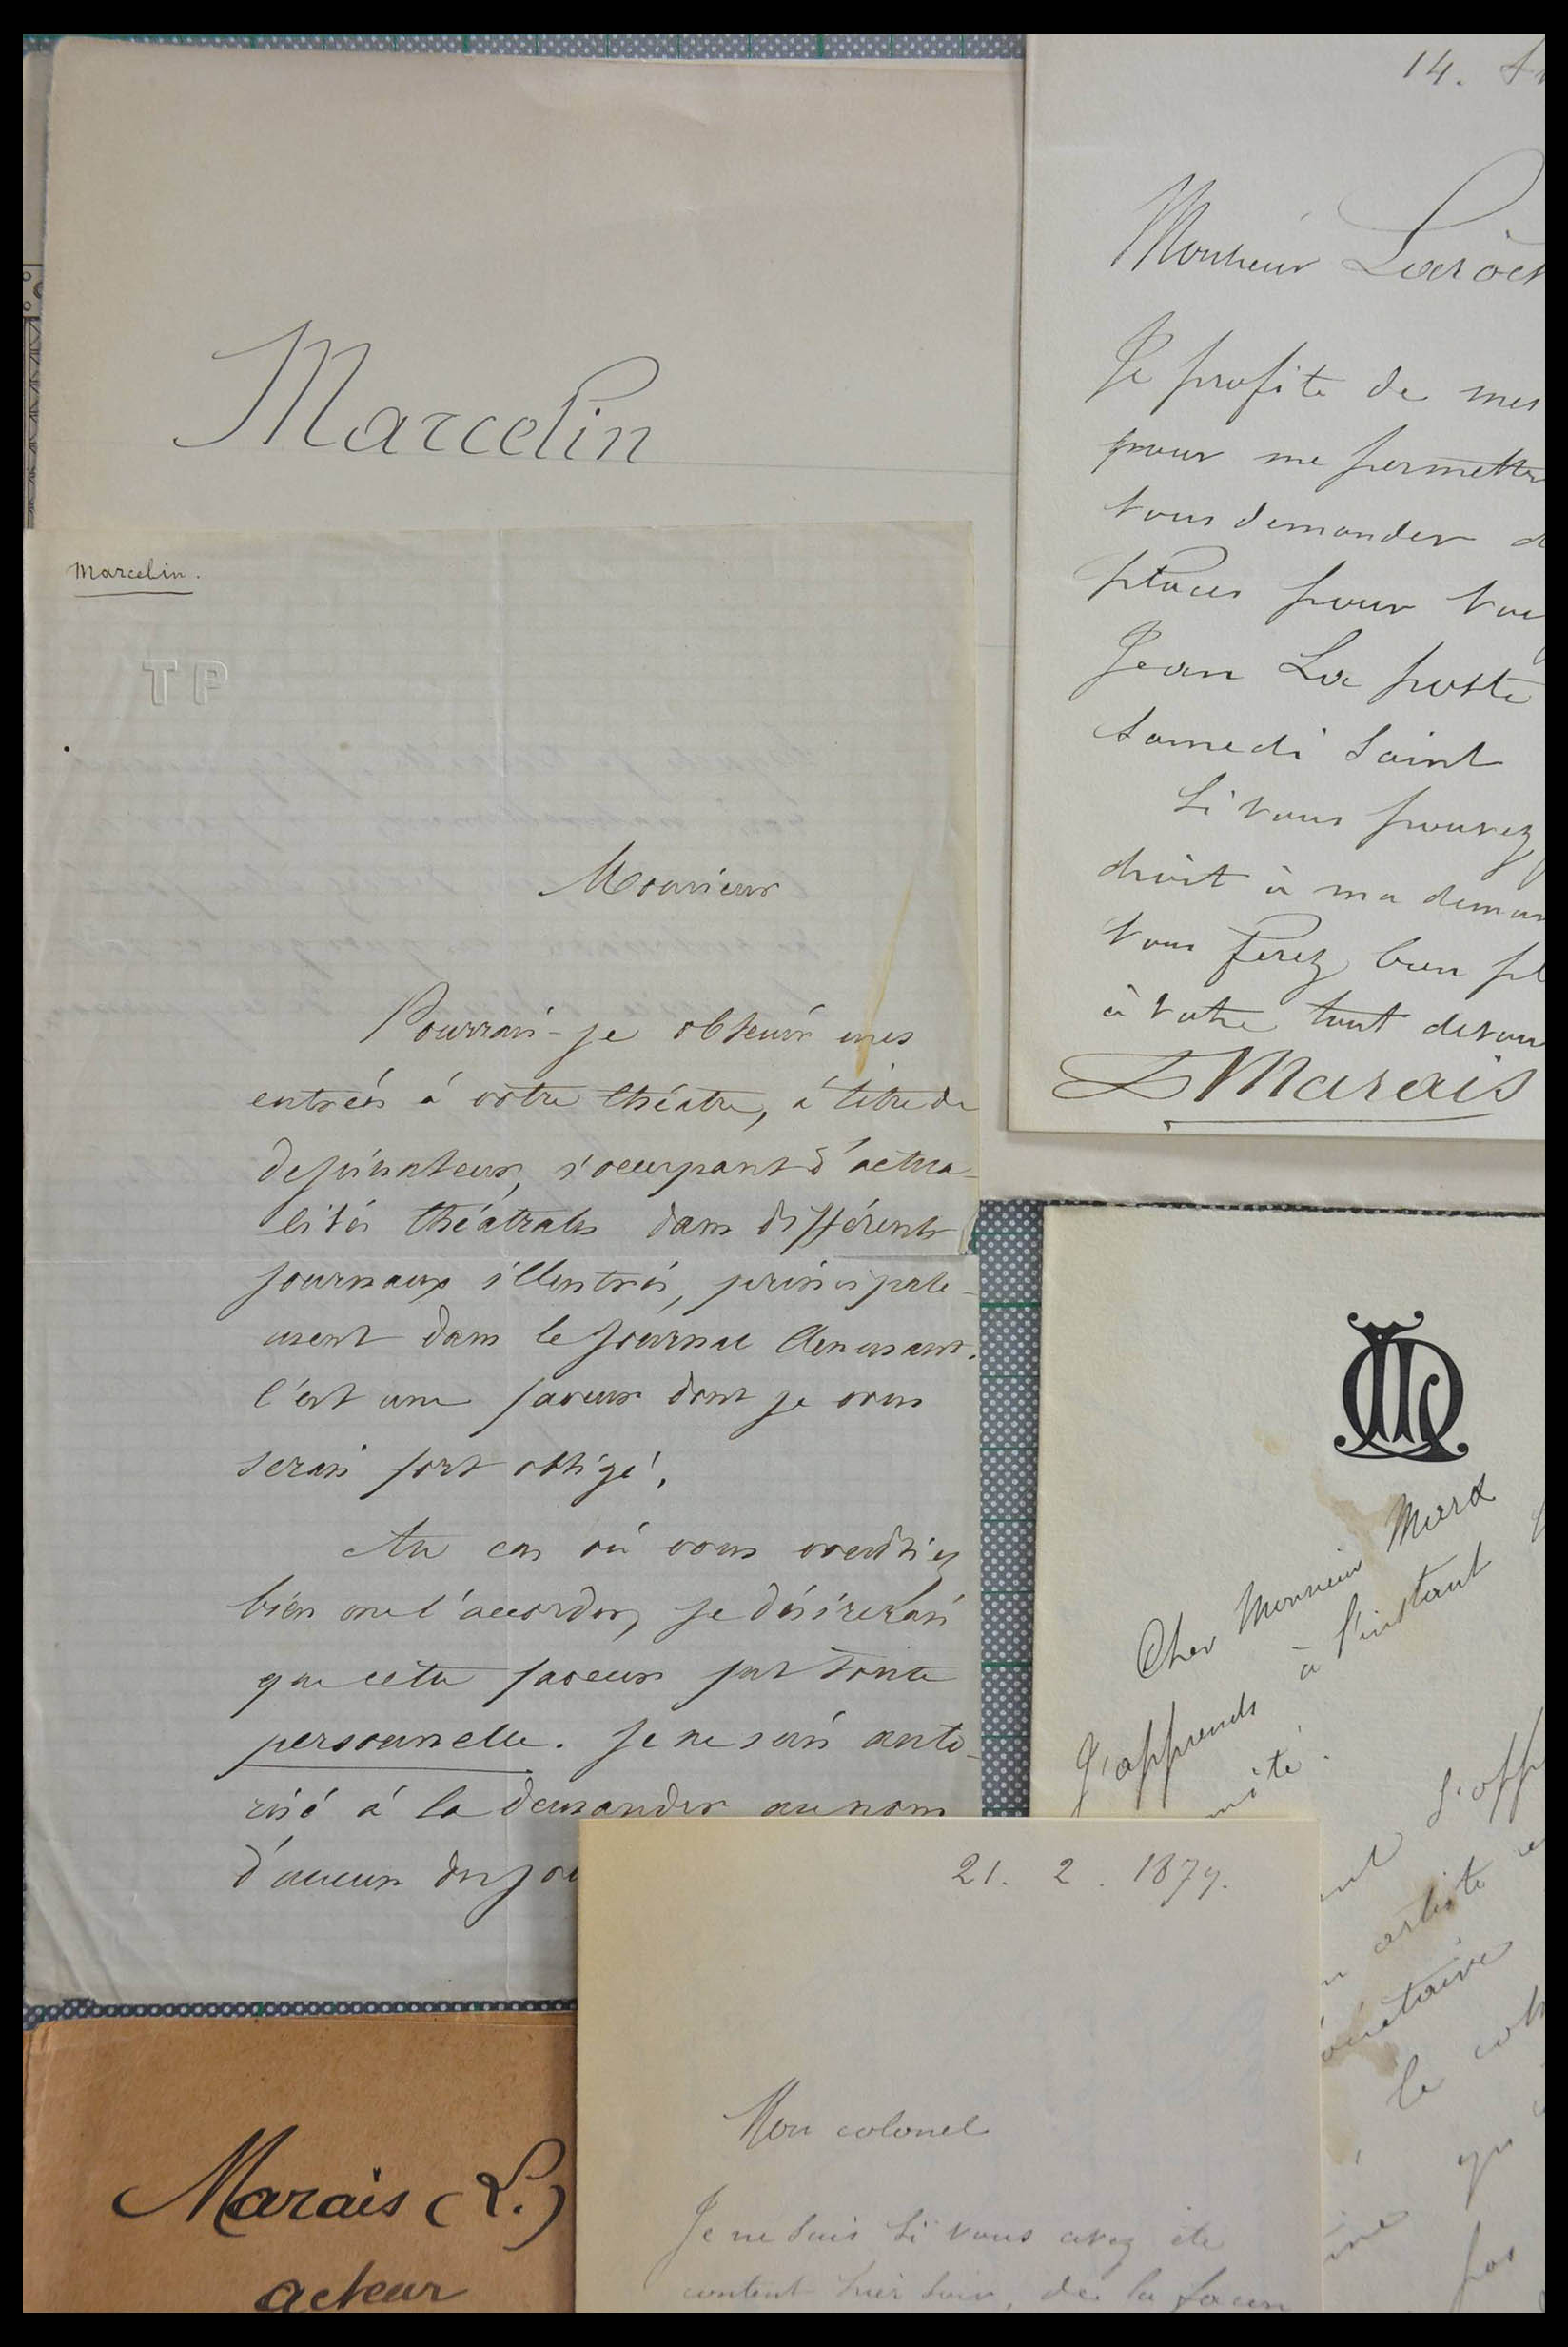 Marcelin
Marcelin.
TP
Monsieur
Pourrais-je obtenir mes
entrées à votre théâtre, à titre de
dessinateur, s'occupant d'actua-
lités théâtrales dans différents
journaux illustrés, principale-
ment dans le Journal Amusant.
C'est une faveur dont je vous
serais fort obligé.
Au cas où vous voudriez
bien me l'accorder, je désirerais
que cette faveur fut toute
personnelle. Je ne suis auto-
risé à la demander au nom
d'aucun des jou
14.
Monsieur Laroch
Je profite de mes
pour me permettre
vous demander d
places pour voi
Jean La poste
Samedi Saint
Si vous pouvez
droit à ma deman
vous ferez bien pl
à votre tout dévou
L Marais
Cher Monsieur Marx
J'apprends à l'instant
mité.
ent s'off
n artiste
le
qu
pas
21. 2. 1879.
Mon colonel
Je ne sais si vous avez été
content hier soir, de la façon
Marais (L.)
acteur